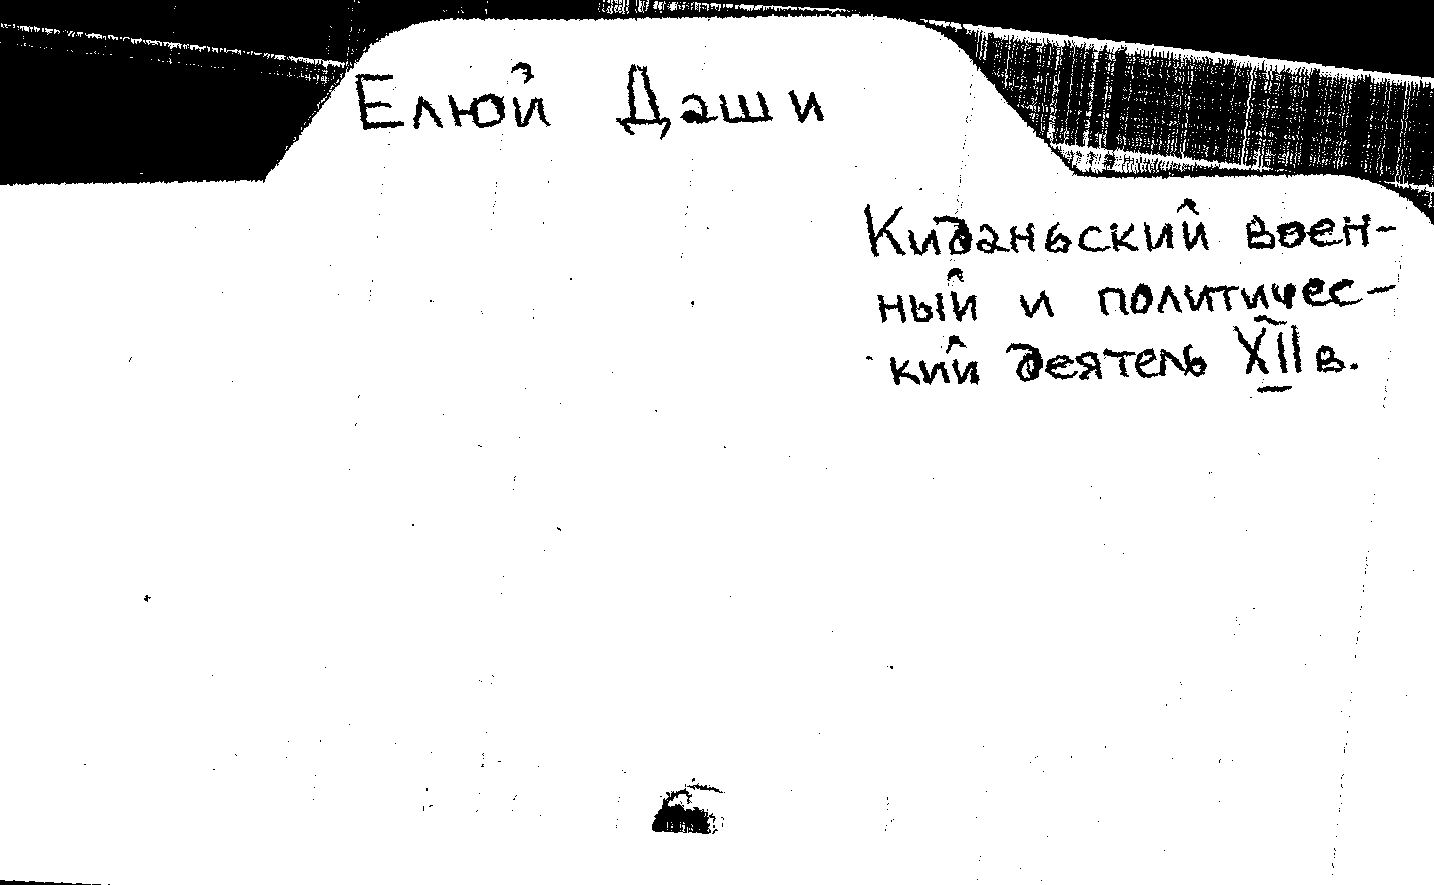 Елюй Даши
Киданьский воен-
ный и политичес-
кий деятель XII в.